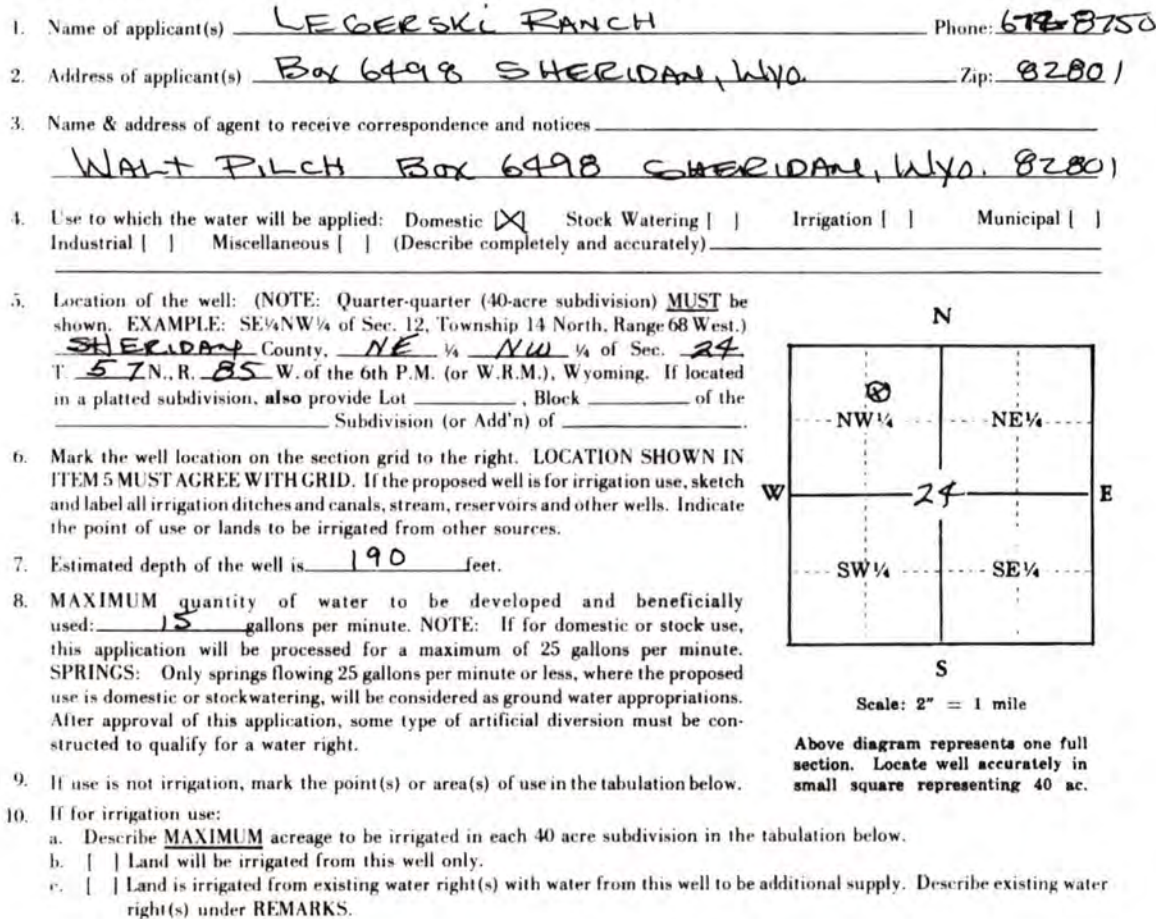 1. Name of applicant(s) LEGERSKI RANCH Phone: 8750
2. Address of applicant(s) Box 6498 SHERIDAN, WYO. Zip: 82801
3. Name & address of agent to receive correspondence and notices
WALT PILCH Box 6498 SHERIDAN, WYO. 82801
4. Use to which the water will be applied: Domestic [X] Stock Watering [ ] Irrigation [ ] Municipal [ ]
Industrial [ ] Miscellaneous [ ] (Describe completely and accurately)
5. Location of the well: (NOTE: Quarter-quarter (40-acre subdivision) MUST be
shown. EXAMPLE: SE¼NW¼ of Sec. 12, Township 14 North, Range 68 West.)
SHERIDAN County, NE ¼ NW ¼ of Sec. 24,
T. 57 N., R. 85 W. of the 6th P.M. (or W.R.M.), Wyoming. If located
in a platted subdivision, also provide Lot , Block of the
Subdivision (or Add'n) of .
6. Mark the well location on the section grid to the right. LOCATION SHOWN IN
ITEM 5 MUST AGREE WITH GRID. If the proposed well is for irrigation use, sketch
and label all irrigation ditches and canals, stream, reservoirs and other wells. Indicate
the point of use or lands to be irrigated from other sources.
7. Estimated depth of the well is 190 feet.
8. MAXIMUM quantity of water to be developed and beneficially
used: 15 gallons per minute. NOTE: If for domestic or stock use,
this application will be processed for a maximum of 25 gallons per minute.
SPRINGS: Only springs flowing 25 gallons per minute or less, where the proposed
use is domestic or stockwatering, will be considered as ground water appropriations.
After approval of this application, some type of artificial diversion must be con-
structed to qualify for a water right.
9. If use is not irrigation, mark the point(s) or area(s) of use in the tabulation below.
10. If for irrigation use:
a. Describe MAXIMUM acreage to be irrigated in each 40 acre subdivision in the tabulation below.
b. [ ] Land will be irrigated from this well only.
c. [ ] Land is irrigated from existing water right(s) with water from this well to be additional supply. Describe existing water
right(s) under REMARKS.
N
NW¼ NE¼
W 24 E
SW¼ SE¼
S
Scale: 2" = 1 mile
Above diagram represents one full
section. Locate well accurately in
small square representing 40 ac.